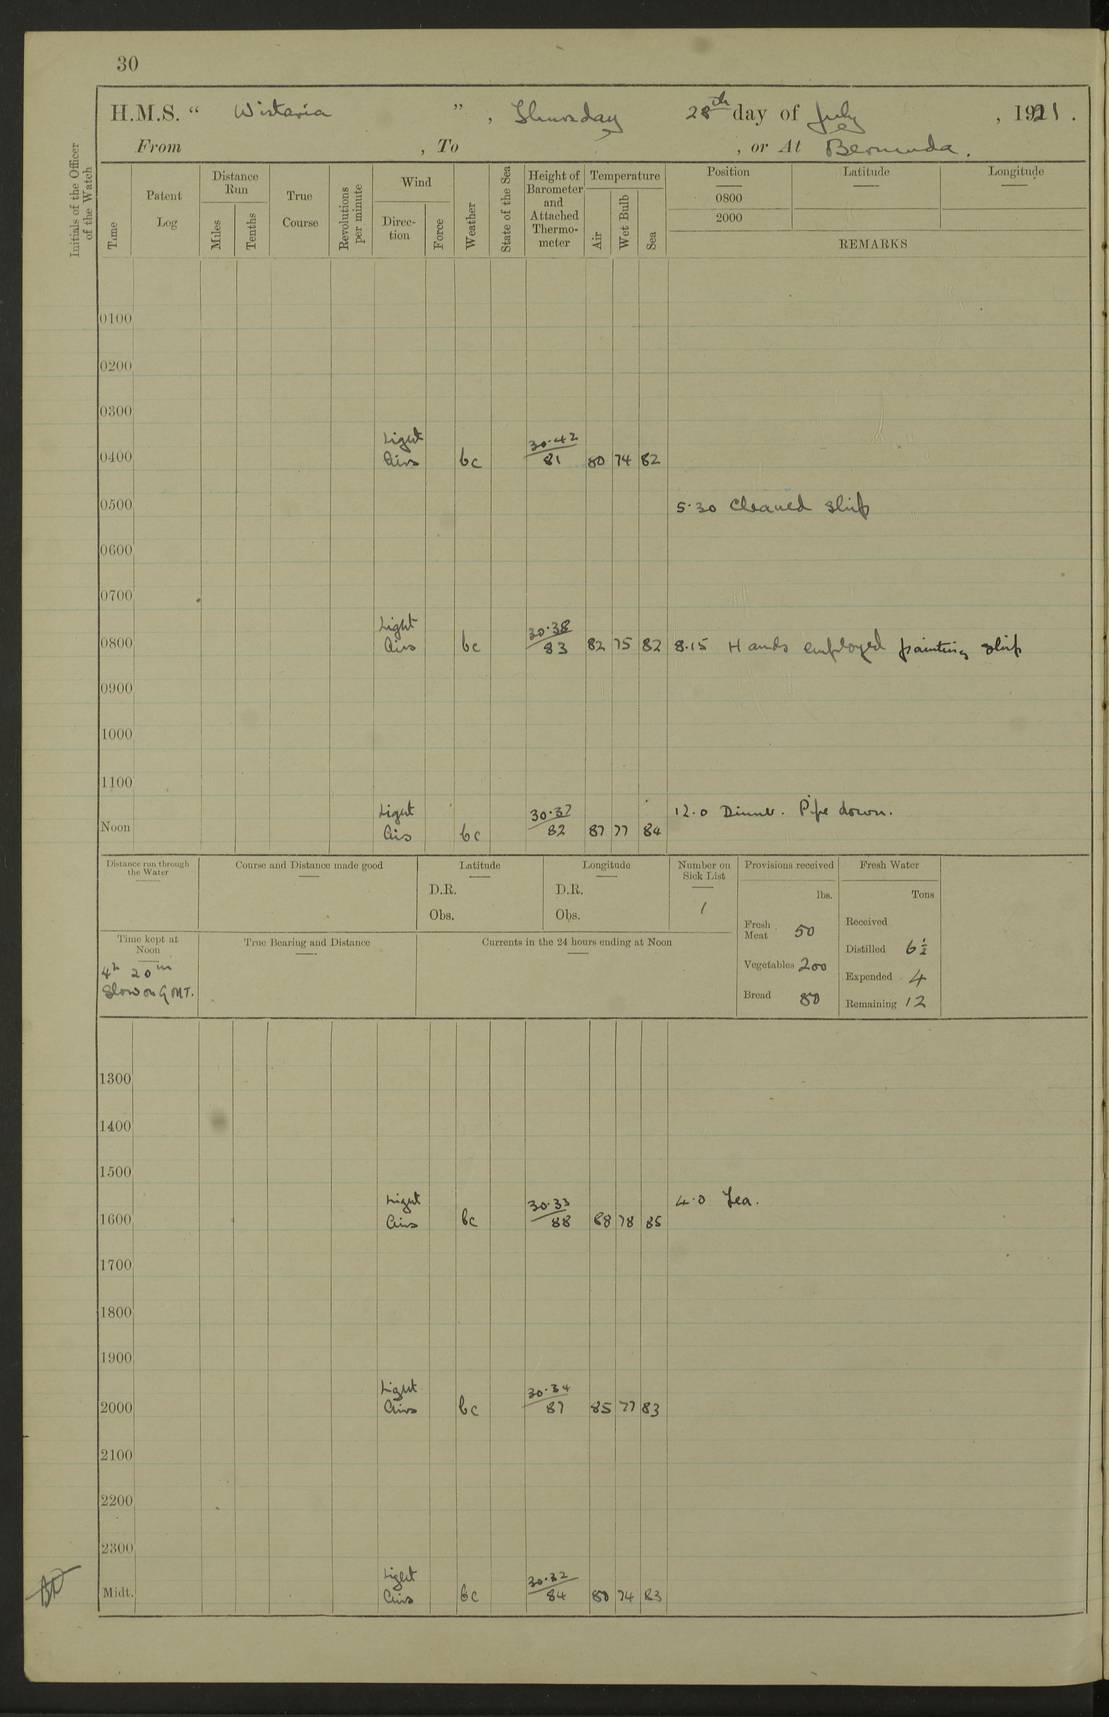 30
H.M.S. “ Wistaria ” , Thursday 28th day of July , 1921 .
From , To , or At Bermuda.
Initials of the Officer of the Watch
Time
Patent Log
Distance Run
Miles
Tenths
True Course
Revolutions per minute
Wind
Direction
Force
Weather
State of the Sea
Height of Barometer and Attached Thermometer
Temperature
Air
Wet Bulb
Sea
Position Latitude Longitude
0800
2000
REMARKS
0100
0200
0300
Light 30·42
0400 Airs bc 81 80 74 82
0500 5·30 Cleaned ship
0600
0700
Light 30·38
0800 Airs bc 83 82 75 82 8·15 Hands employed painting ship
0900
1000
1100
Light 30·37 12·0 Dinner. Pipe down.
Noon Airs bc 82 87 77 84
Distance run through the Water
Course and Distance made good
Latitude
D.R.
Obs.
Longitude
D.R.
Obs.
Number on Sick List
1
Provisions received
lbs.
Fresh Meat 50
Vegetables 200
Bread 80
Fresh Water
Tons
Received
Distilled 6½
Expended 4
Remaining 12
Time kept at Noon
4h 20m
Slow on GMT.
True Bearing and Distance
Currents in the 24 hours ending at Noon
1300
1400
1500
Light 30·33 4·0 Tea.
1600 Airs bc 88 88 78 85
1700
1800
1900
Light 30·34
2000 Airs bc 87 85 77 83
2100
2200
2300
Light 30·32
Midt. Airs bc 84 80 74 83